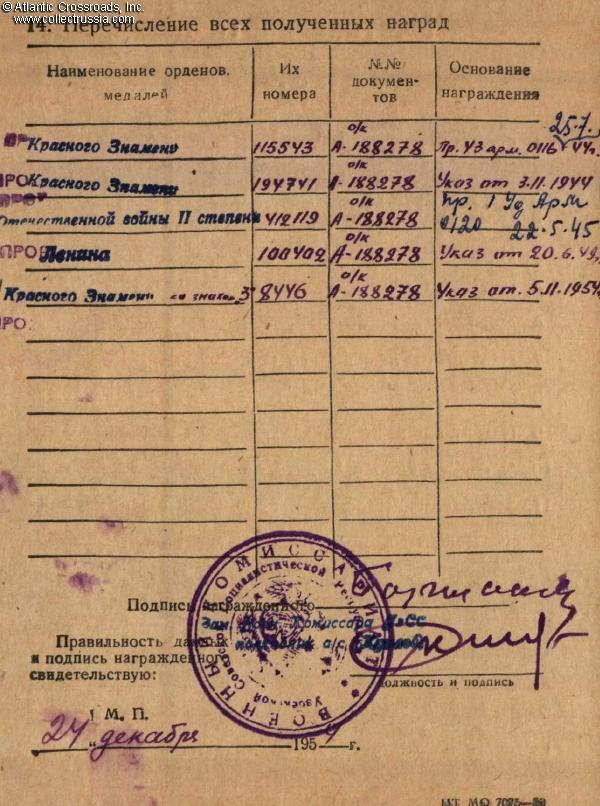 © Atlantic Crossroads, Inc.
www.collectrussia.com
14. Перечисление всех полученных наград
Наименование орденов, медалей
Их номера
№№ документов
Основание награждения
Красного Знамени 115543 о/к А-188278 Пр. 43 арм. 0116 25.7. 44.
Красного Знамени 194741 о/к А-188278 Указ от 3.11.1944
Отечественной войны II степени 412119 о/к А-188278 Пр. 1 Уд Арм 0120 22.5.45
Ленина 100402 о/к А-188278 Указ от 20.6.49
Красного Знамени со знаком "3" 8446 о/к А-188278 Указ от 5.11.1954
Подпись награжденного
Правильность данных
и подпись награжденного
свидетельствую:
должность и подпись
М. П.
"24" декабря 1954 г.
ВОЕННЫЙ КОМИССАРИАТ